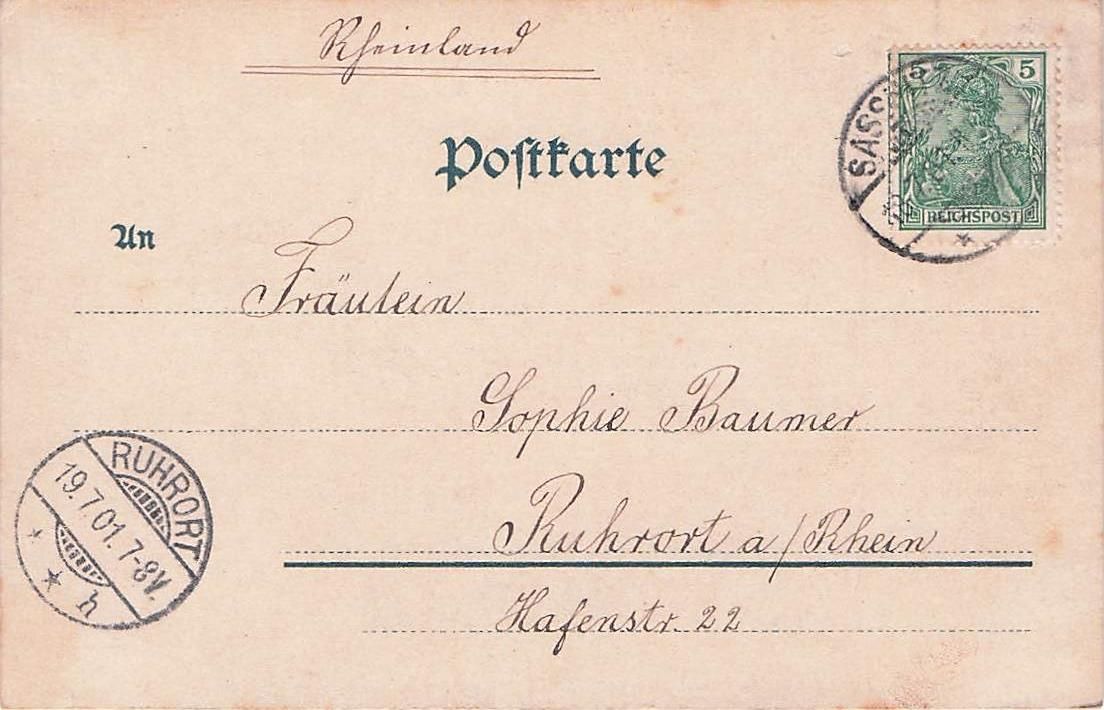 Rheinland
Postkarte
5 5
REICHSPOST
An
Fräulein
Sophie Baumer
Ruhrort a/Rhein
Hafenstr. 22
RUHRORT
19.7.01. 7-8V.
h